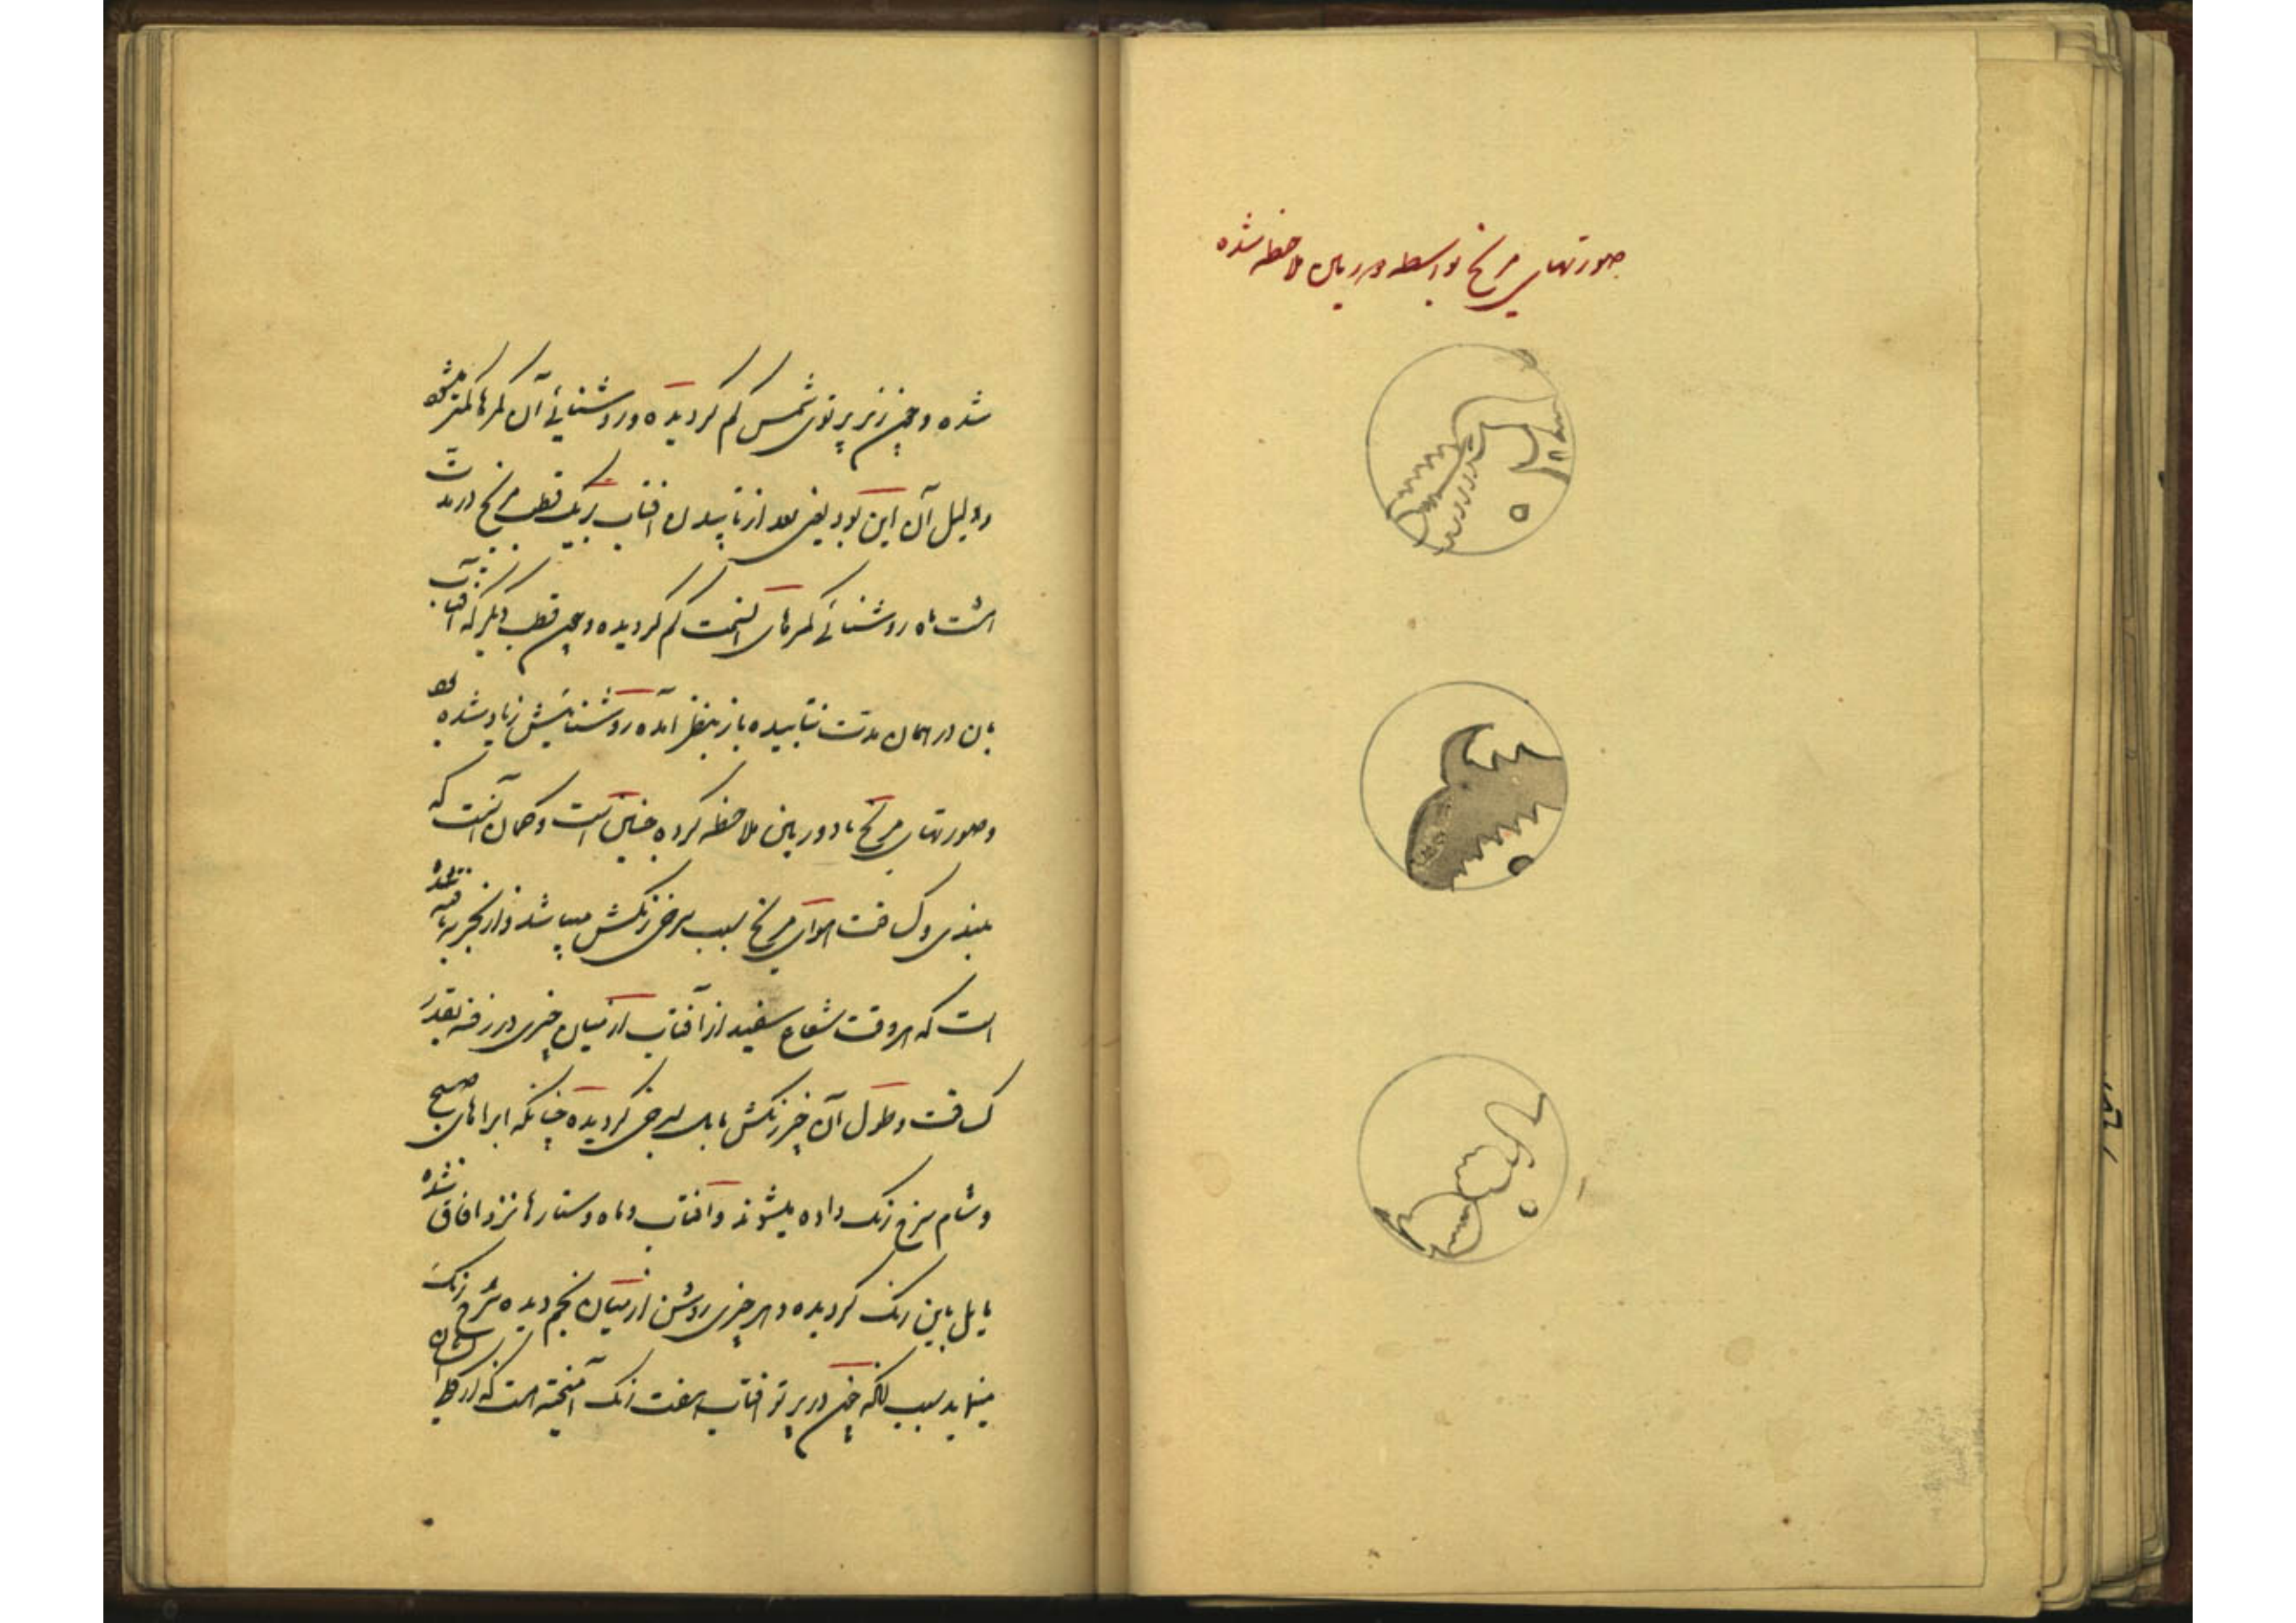 صورتهای مریخ بواسطه دوربین ملاحظه شده
شده و چون زیر پرتوی شمس کم گردیده و روشنائی آن کمرها کمتر میشود
و دلیل آن این بود یعنی بعد از تابیدن افتاب بریک قطب مریخ در مدت
هشت ماه روشنائی کمرهای آنسمت کم گردیده و چون قطب دیگر که افتاب
بان در همان مدت نتابیده باز بنظر آمده روشنائیش زیاد شده بود
و صورتهای مریخ با دوربین ملاحظه کرده چنین است و گمان آنست که
بلندی و کسافت هوای مریخ سبب سرخی رنگش میباشد و از تجربه یافته شده
است که هر وقت شعاع سفید از آفتاب از میان چیزی در رفته بقدر
کسافت و طول آن چیز رنگش مایل بسرخی گردیده چنانکه ابراهای صبح
و شام سرخ رنگ داده میشوند و آفتاب و ماه و ستارها نزد افاق شده
مایل باین رنگ گردیده و هر چیزی روشن از میان نجم دیده سرخ رنگ
مینماید بسبب انکه چون در پرتو افتاب هفت رنگ آمیخته است که از